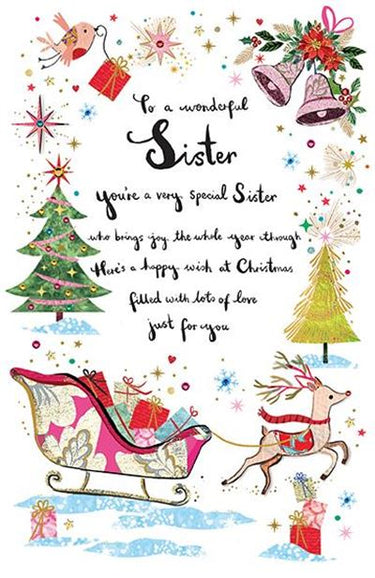 To a wonderful
Sister
You're a very special Sister
who brings joy the whole year through
Here's a happy wish at Christmas
filled with lots of love
just for you